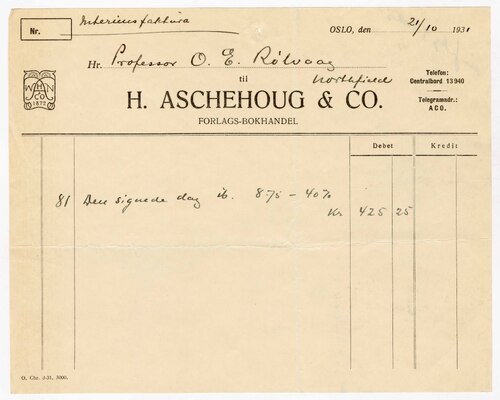 Nr. Interimsfaktura
OSLO, den 21/10 1931
Hr. Professor O. E. Rölvaag
Northfield
til
WHAN
CO
1872
H. ASCHEHOUG & CO.
FORLAGS-BOKHANDEL
Telefon:
Centralbord 13940
Telegramadr.:
ACO.
Debet Kredit
81 Den signede dag ib. 8.75 - 40%
Kr. 425 25
O. Chr. 3-31. 3000.